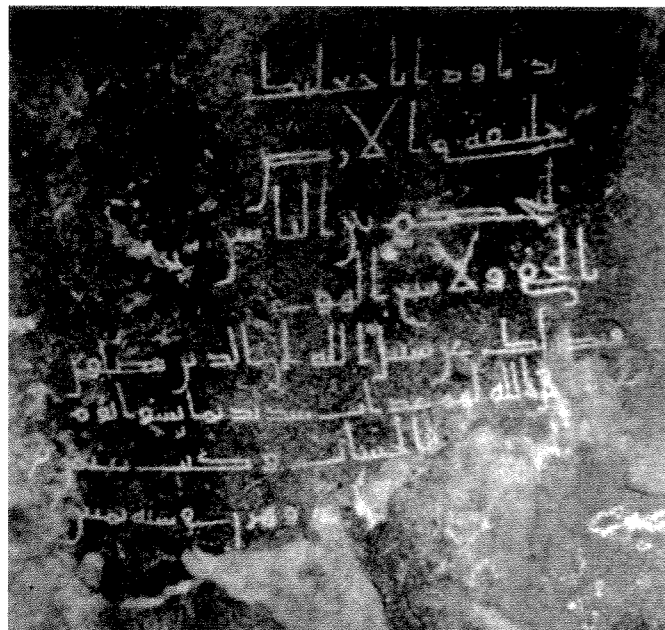 يداود انا جعلنك
خليفة في الارض
فاحكم بين الناس
بالحق ولا تتبع الهوى
فيضلك عن سبيل الله ان الذين يضلون
الله لهم عذاب شديد بما نسوا يوم
الحساب وكتب
سنة ثمنين